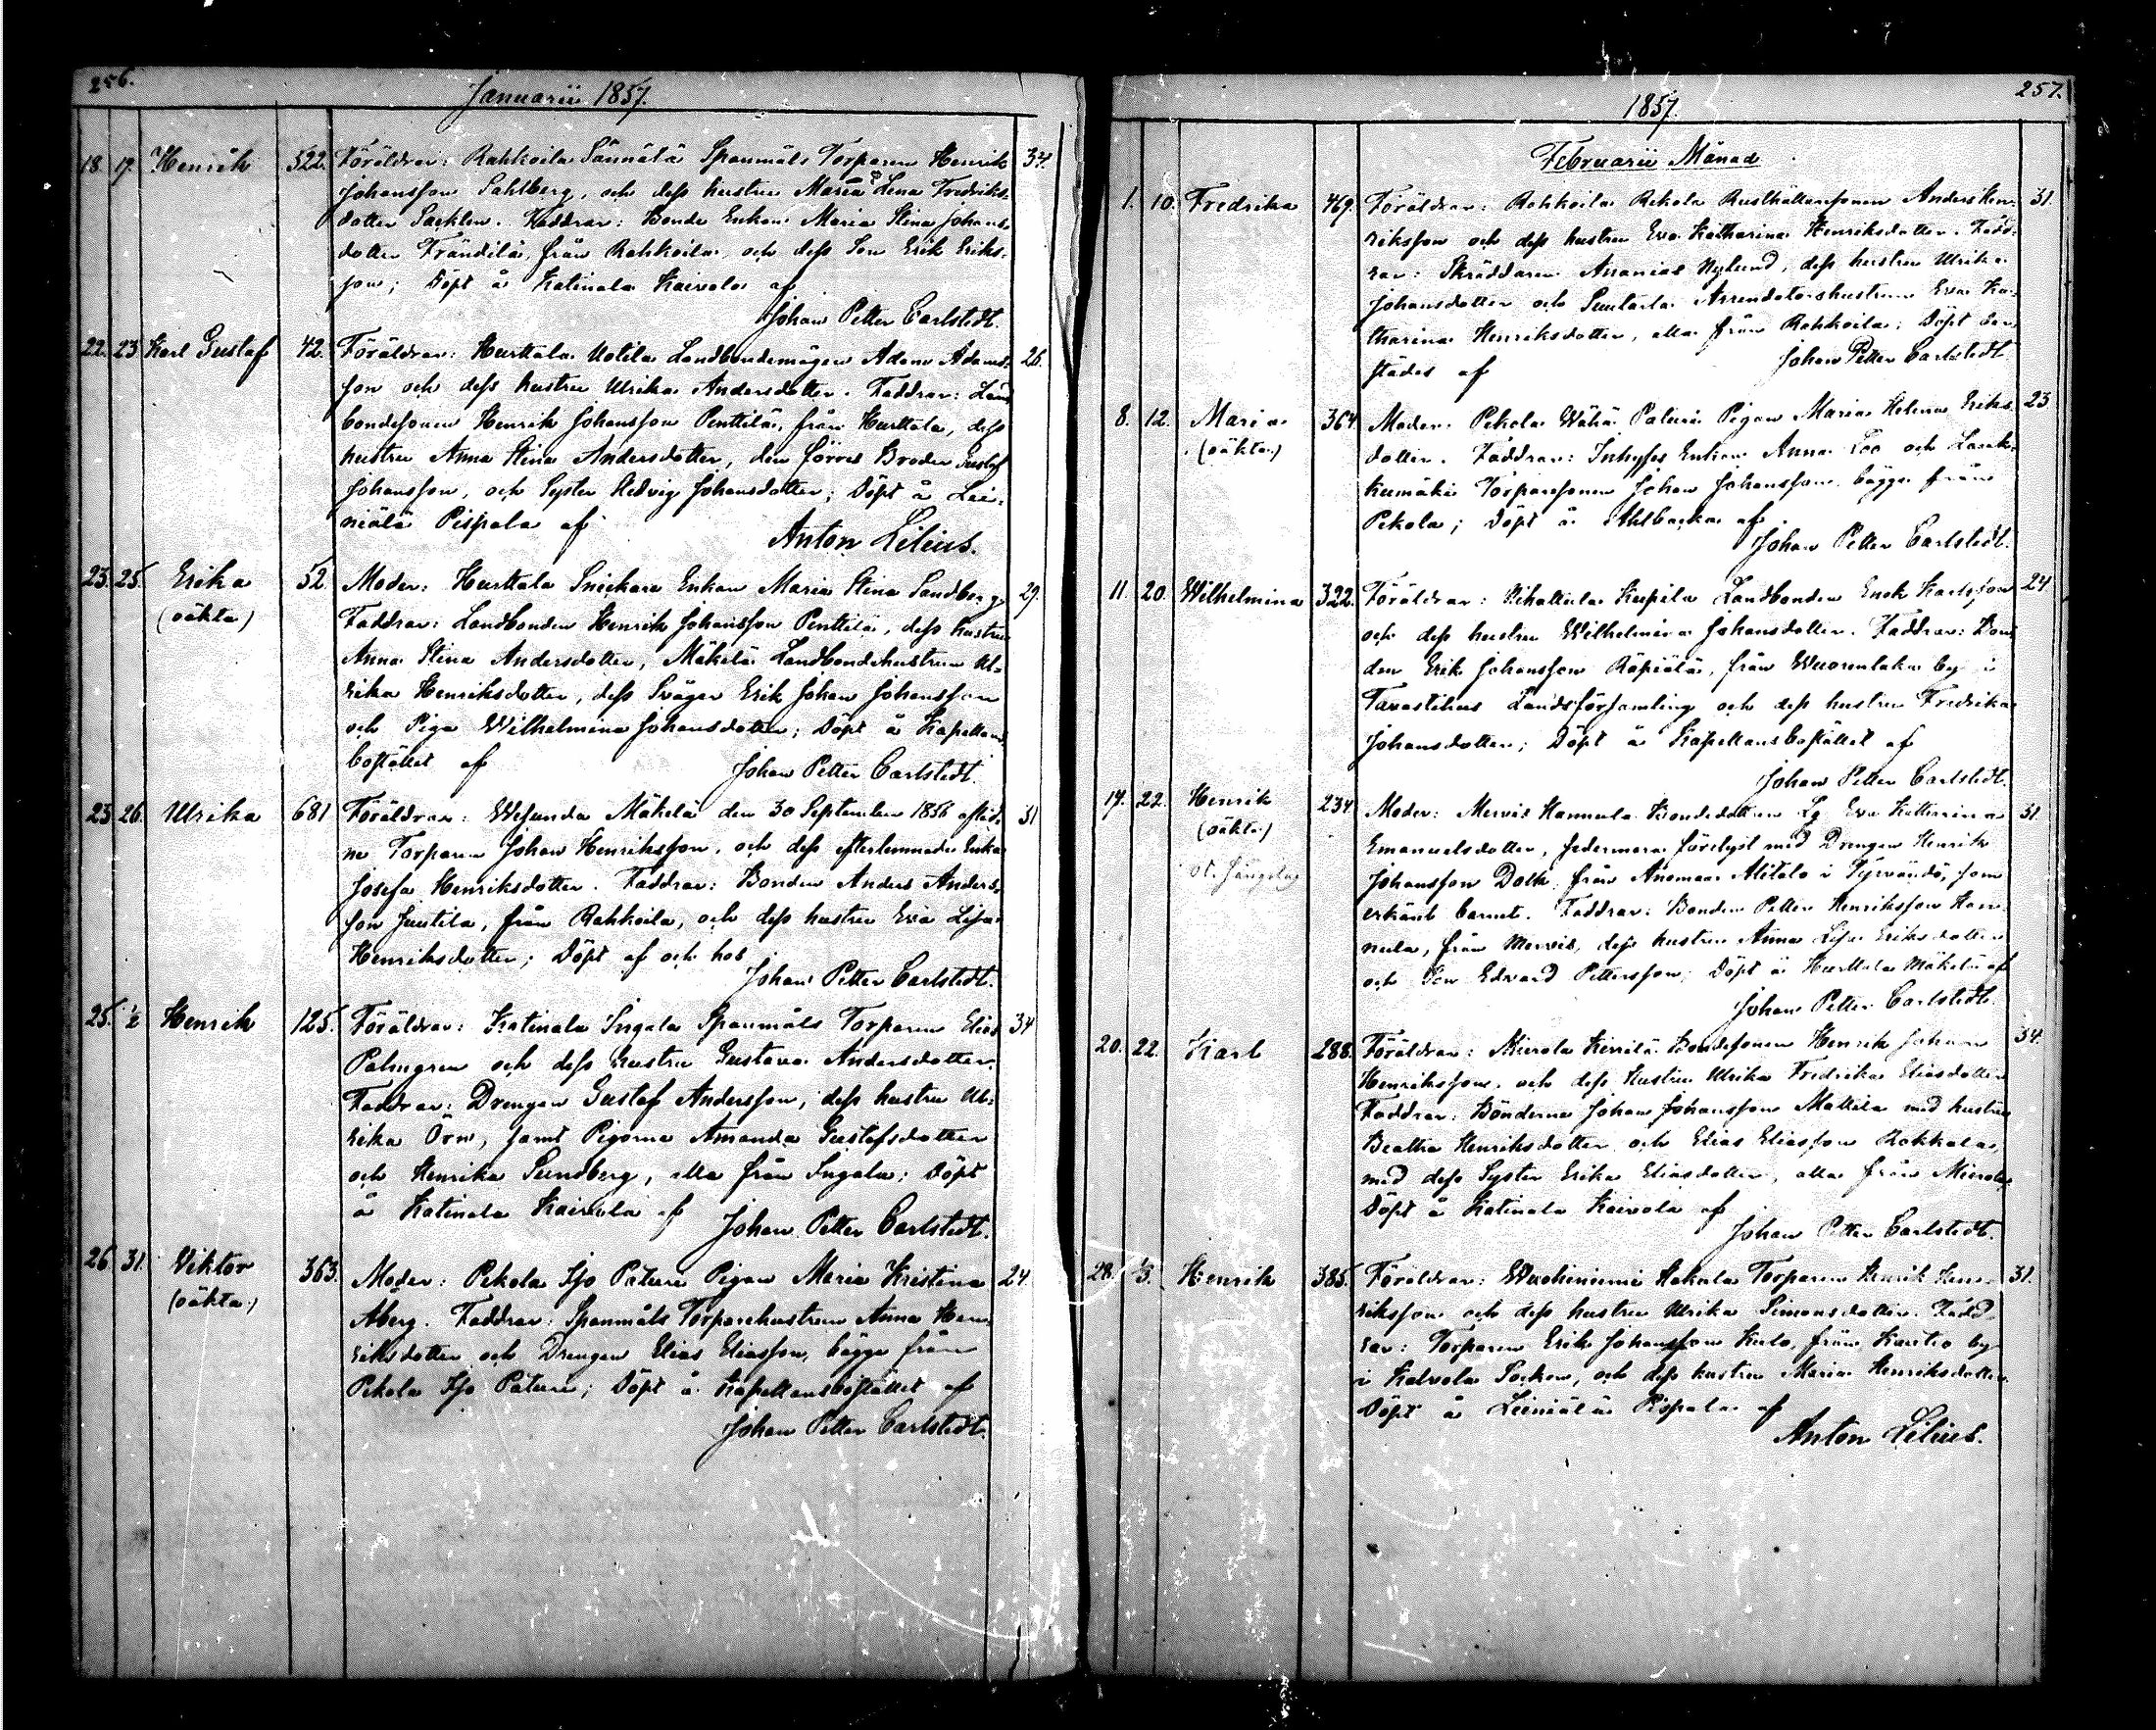 256.
Januarii 1857.
18. 19. Henrik 522. Föräldrar: Rahkoila Sännälä Spanmåls Torparen Henrik 34.
Johansson Sahlberg, och dess hustru Maria Lena Fredriks-
dotter. Faddrar: Bonde Enkan Maria Stina Johans-
dotter Frändilä, från Rahkoila, och dess Son Erik Eriks-
son; Döpt å Katinala Kaivola af
Johan Petter Carlstedt.
22. 23. Karl Gustaf 42. Föräldrar: Hurttala Uotila Landbondemågen Adam Adams- 26.
son och dess hustru Ulrika Andersdotter. Faddrar: Land
bondesonen Henrik Johansson Penttilä, från Hurttala, dess
hustru Anna Stina Andersdotter, den förres Broder Gustaf
Johansson, och Syster Hedvig Johansdotter; Döpt å Lei-
niälä Pispala af
Anton Lilius.
23. 25. Erika 52. Moder: Hurttala Snickare Enkan Maria Stina Sandberg. 29.
(oäkta) Faddrar: Landbonden Henrik Johansson Penttilä, dess hustru
Anna Stina Andersdotter, Mäkelä Landbondehustrun Ul-
rika Henriksdotter, dess Svåger Erik Johan Johansson
och Piga Wilhelmina Johansdotter; Döpt å Kapellans
bostället af
Johan Petter Carlstedt.
23. 26. Ulrika 681 Föräldrar: Wesunda Mäkelä den 30 September 1856 aflid- 31
ne Torparen Johan Henriksson, och dess efterlemnade Enka
Josefa Henriksdotter. Faddrar: Bonden Anders Anders-
son Juutila, från Rahkoila, och dess hustru Eva Lisa
Henriksdotter; Döpt af och hos
Johan Petter Carlstedt.
25. 1/2 Henrik 125. Föräldrar: Katinala Ingala Spanmåls Torparen Elias 34
Palmgren och dess hustru Gustava Andersdotter.
Faddrar: Drengen Gustaf Andersson, dess hustru Ul-
rika Örn, samt Pigorna Amanda Gustafsdotter
och Henrika Sundberg, alla från Ingala; Döpt
å Katinala Kaivola af
Johan Petter Carlstedt.
26. 31. Viktor 363. Moder: Pekola Iso Paturi Pigan Maria Kristina 24.
(oäkta) Åberg. Faddrar: Spanmåls Torparehustrun Anna Hen-
riksdotter och Drengen Elias Eliasson, bägge från
Pekola Iso Paturi; Döpt å Kapellansbostället af
Johan Petter Carlstedt.
257.
1857.
Februarii Månad
1. 10. Fredrika 469. Föräldrar: Rahkoila Rekola Rusthållaresonen Anders Hen- 31.
riksson och dess hustru Eva Katharina Henriksdotter. Fadd-
rar: Skräddaren Ananias Nylund, dess hustru Ulrika
Johansdotter och Arrendatorshustrun Eva Ka-
tharina Henriksdotter, alla från Rahkoila; Döpt der-
städes af
Johan Petter Carlstedt
8. 12. Maria 364. Moder: Pekola Wähä Paturi Pigan Maria Helena Eriks- 23
(oäkta) dotter. Faddrar: Inhyses Enkan Anna och
Torparesonen Johan Johansson, bägge från
Pekola; Döpt å Ahlbacka af
Johan Petter Carlstedt.
11. 20. Wilhelmina 322. Föräldrar: Nihattula Kupila Landbonden Enok Karlsson 24.
och dess hustru Wilhelmina Johansdotter. Faddrar: Bon-
den Erik Johansson Räpiälä, från Wuorentaka by i
Tavastehus Landsförsamling och dess hustru Fredrika
Johansdotter; Döpt å Kapellansbostället af
Johan Petter Carlstedt.
19. 22. Henrik 234 Moder: Mervis Hannula Bondedottren Eva Katharina 31.
(oäkta) Emanuelsdotter, sedermera förelyst med Drengen Henrik
Johansson Dolk från Anomaa Alitalo i Tyrvändö, som
erkänt barnet. Faddrar: Bonden Petter Henriksson Han-
nula, från Mervis, dess hustru Anna Lisa Eriksdotter
och Son Edvard Pettersson; Döpt å Hurttala Mäkelä af
Johan Petter Carlstedt.
20. 22. Karl 288. Föräldrar: Mierola Bondesonen Henrik Johan 34.
Henriksson, och dess hustru Ulrika Fredrika Eliasdotter
Faddrar: Bönderna Johan Johansson Mattila med hustru
Beatha Henriksdotter och Elias Eliasson Rokkala,
med dess Syster Erika Eliasdotter, alla från Mierola;
Döpt å Katinala Kaivola af
Johan Petter Carlstedt.
28. 1/3. Henrik 385. Föräldrar: Wuohiniemi Hakala Torparen Henrik Hen- 31.
riksson och dess hustru Ulrika Simonsdotter. Fadd-
rar: Torparen Erik Johansson Kulo, från by
i Kalvola Socken, och dess hustru Maria Henriksdotter.
Döpt å Leiniälä Pispala af
Anton Lilius.